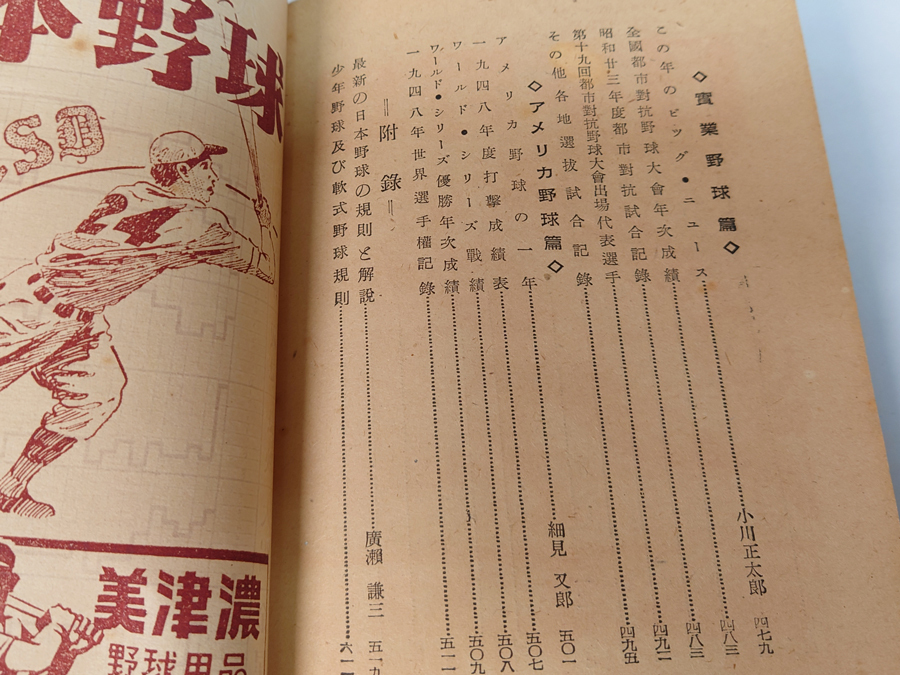 ◇實業野球篇◇
この年のビッグ・ニュース……小川正太郎 四七九
全國都市對抗野球大會年次成績……四八三
昭和廿三年度都市對抗試合記錄……四八三
第十九回都市對抗野球大會出場代表選手……四九二
その他各地選抜試合記錄……四九五
◇アメリカ野球篇◇
アメリカ野球の一年……細見又郎 五〇一
一九四八年度打撃成績表……五〇七
ワールド・シリーズ戰績……五〇八
ワールド・シリーズ優勝年次成績……五〇九
一九四八年世界選手權記錄……五一一
＝附錄＝
最新の日本野球の規則と解說……廣瀨謙三 五一九
少年野球及び軟式野球規則……六一一
本野球
24
美津濃
野球用品